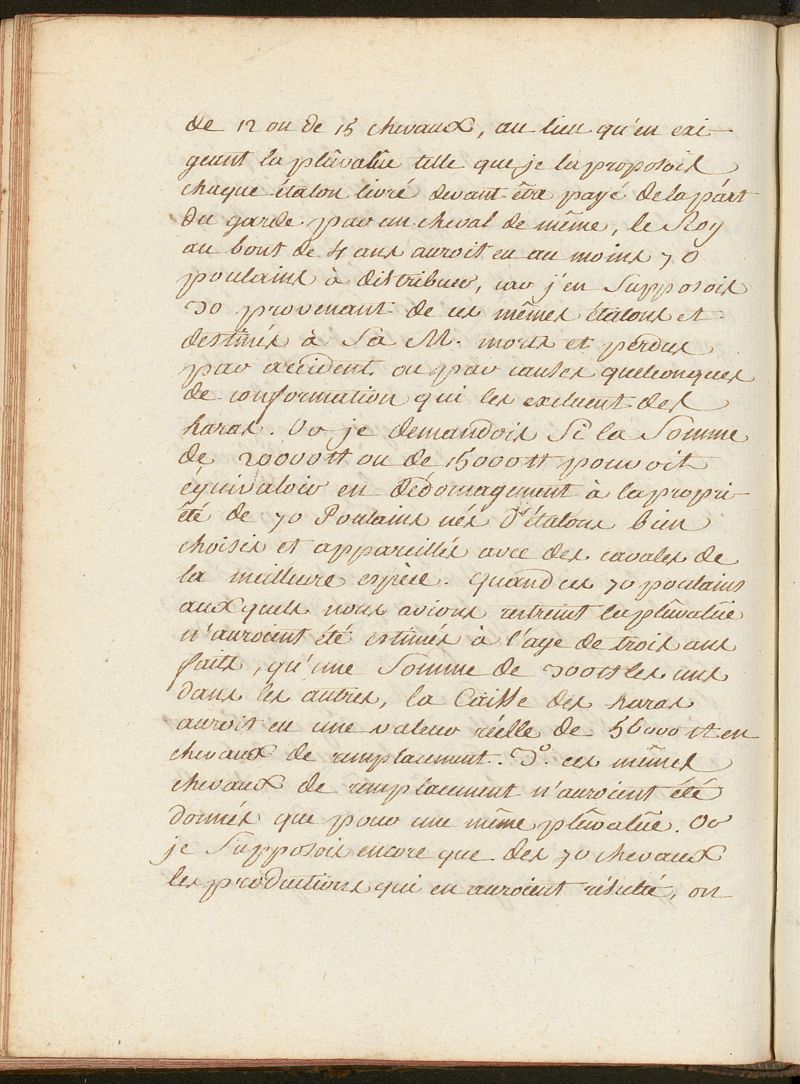 de 12 ou de 15 chevaux, au lieu qu'en exi-
geant la plûvalüe telle que je la proposois
chaque étalon livré devant être payé de la part
du garde par un cheval de même, le Roy
au bout de 4 ans auroit eu au moins 70
poulains à distribuer, car j'en Supposois
30 provenant de ces mêmes étalons et
destinés à Sa M. morts et perdus
par accident ou par causes quelconques
de conformation qui les excluent des
haras. Or je demandois Si la Somme
de 20000 tt ou de 15000 tt pouvoit
équivaloir en dédomagement à la propri-
été de 70 Poulains nés d'étalons bien
choisis et appareillés avec des cavales de
la meilleure espèce. Quand ces 70 poulains
auxquels nous avions restreint la plûvalüe
n'auroient été estimés à l'age de trois ans
faits, qu'une Somme de 300 tt les uns
dans les autres, la Caisse des haras
auroit eu une valeur réelle de 56000 tt en
chevaux de remplacement. 3°. ces mêmes
chevaux de remplacement n'auroient été
donnés que pour une même plûvalüe. Or
je Supposois encore que des 70 chevaux
les productions qui en auroient résulté, on